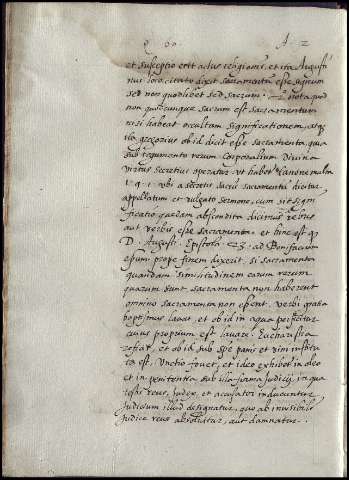 Q. 60. A. 2
et susceptio erit actus religionis, et ita Augusti
nus loco citato dixit sacramentum esse signum
sed non quodlibet sed sacrum. Nota quod
non quodcunque sacrum est sacramentum
nisi habeat occultam significationem, atq
ita gregorius ob id docet esse sacramenta, qua
sub tegumento rerum corporalium Divina
virtus secretius operatur ut habet canone multi
1. q. 1. ubi a secretis sacris sacramenta dictur
appellatum et vulgato sermone, cum sit signi
ficatio quaedam abscondita dicimus rebus
aut verbis esse sacramenta. et hinc est q
D. August. Epistola 23. ad Bonifacium
episcopum prope finem dixerit, si sacramenta
quandam similitudinem earum rerum
quarum sunt sacramenta non haberent
omnino sacramenta non essent. verbi gratia
baptismus lavat, et ob id in aqua perficitur
cuius proprium est lavare. Eucharistia
reficit, et ob id sub spe panis et vini instituta
ta est, Unctio fovet, et ideo exhibet in oleo
et in penitentia sub illa forma Judicij in qua
testis reus, Judex, et accusator inducuntur
Judicium illud designatur, quo ab invisibili
Judice reus absolvitur, aut damnatur.